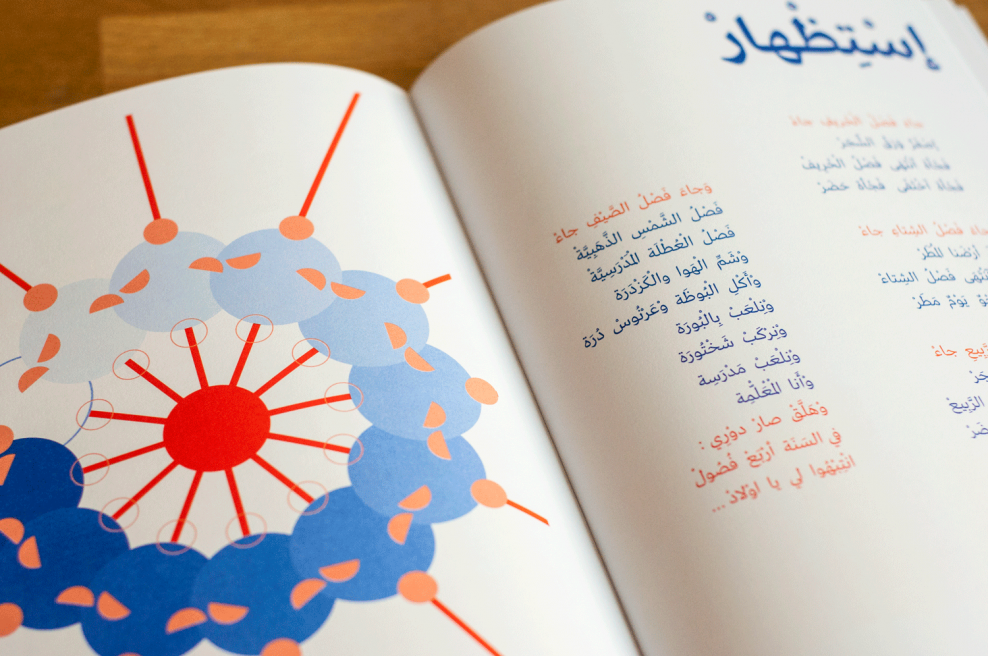 إِسْتِظْهارْ
جاءَ فَصْلُ الخَريفِ جاءْ
إِصفَرّ وَرَقُ الشَّجَرْ
فَجْأَة انْتَهى فَصْلُ الْخَريفْ
فَجْأَة اخْتَفى فَجْأَة حَضَرْ
فَصْلُ الشِّتاءِ جاءْ
أَرْضَنا
فَصْلُ الشِّتاءْ
يَوْمٌ مَطَرْ
جاءْ
الرَّبيعْ
وَجاءَ فَصْلُ الصَّيْفِ جاءْ
فَصْلُ الشَّمْسِ الذَّهَبِيَّةْ
فَصْلُ الْعُطْلَة الْمَدْرَسِيَّةْ
وْشَمّ الْهَوا والْكَزْدَرَة
وْأَكْلِ الْبُوظَة وْعَرْنُوسْ دُرَة
وْنِلْعَبْ بِالْبُورَة
وْنِرْكَبْ شَخْتُورَة
وْنِلْعَبْ مَدْرَسِة
وْأَنا الْمْعَلّْمِة
وْهَلَّقْ صارْ دَوْرِي :
في السَّنَة أَرْبَعْ فْصُولْ
انْتِبْهُوا لي يا اوْلادْ ...